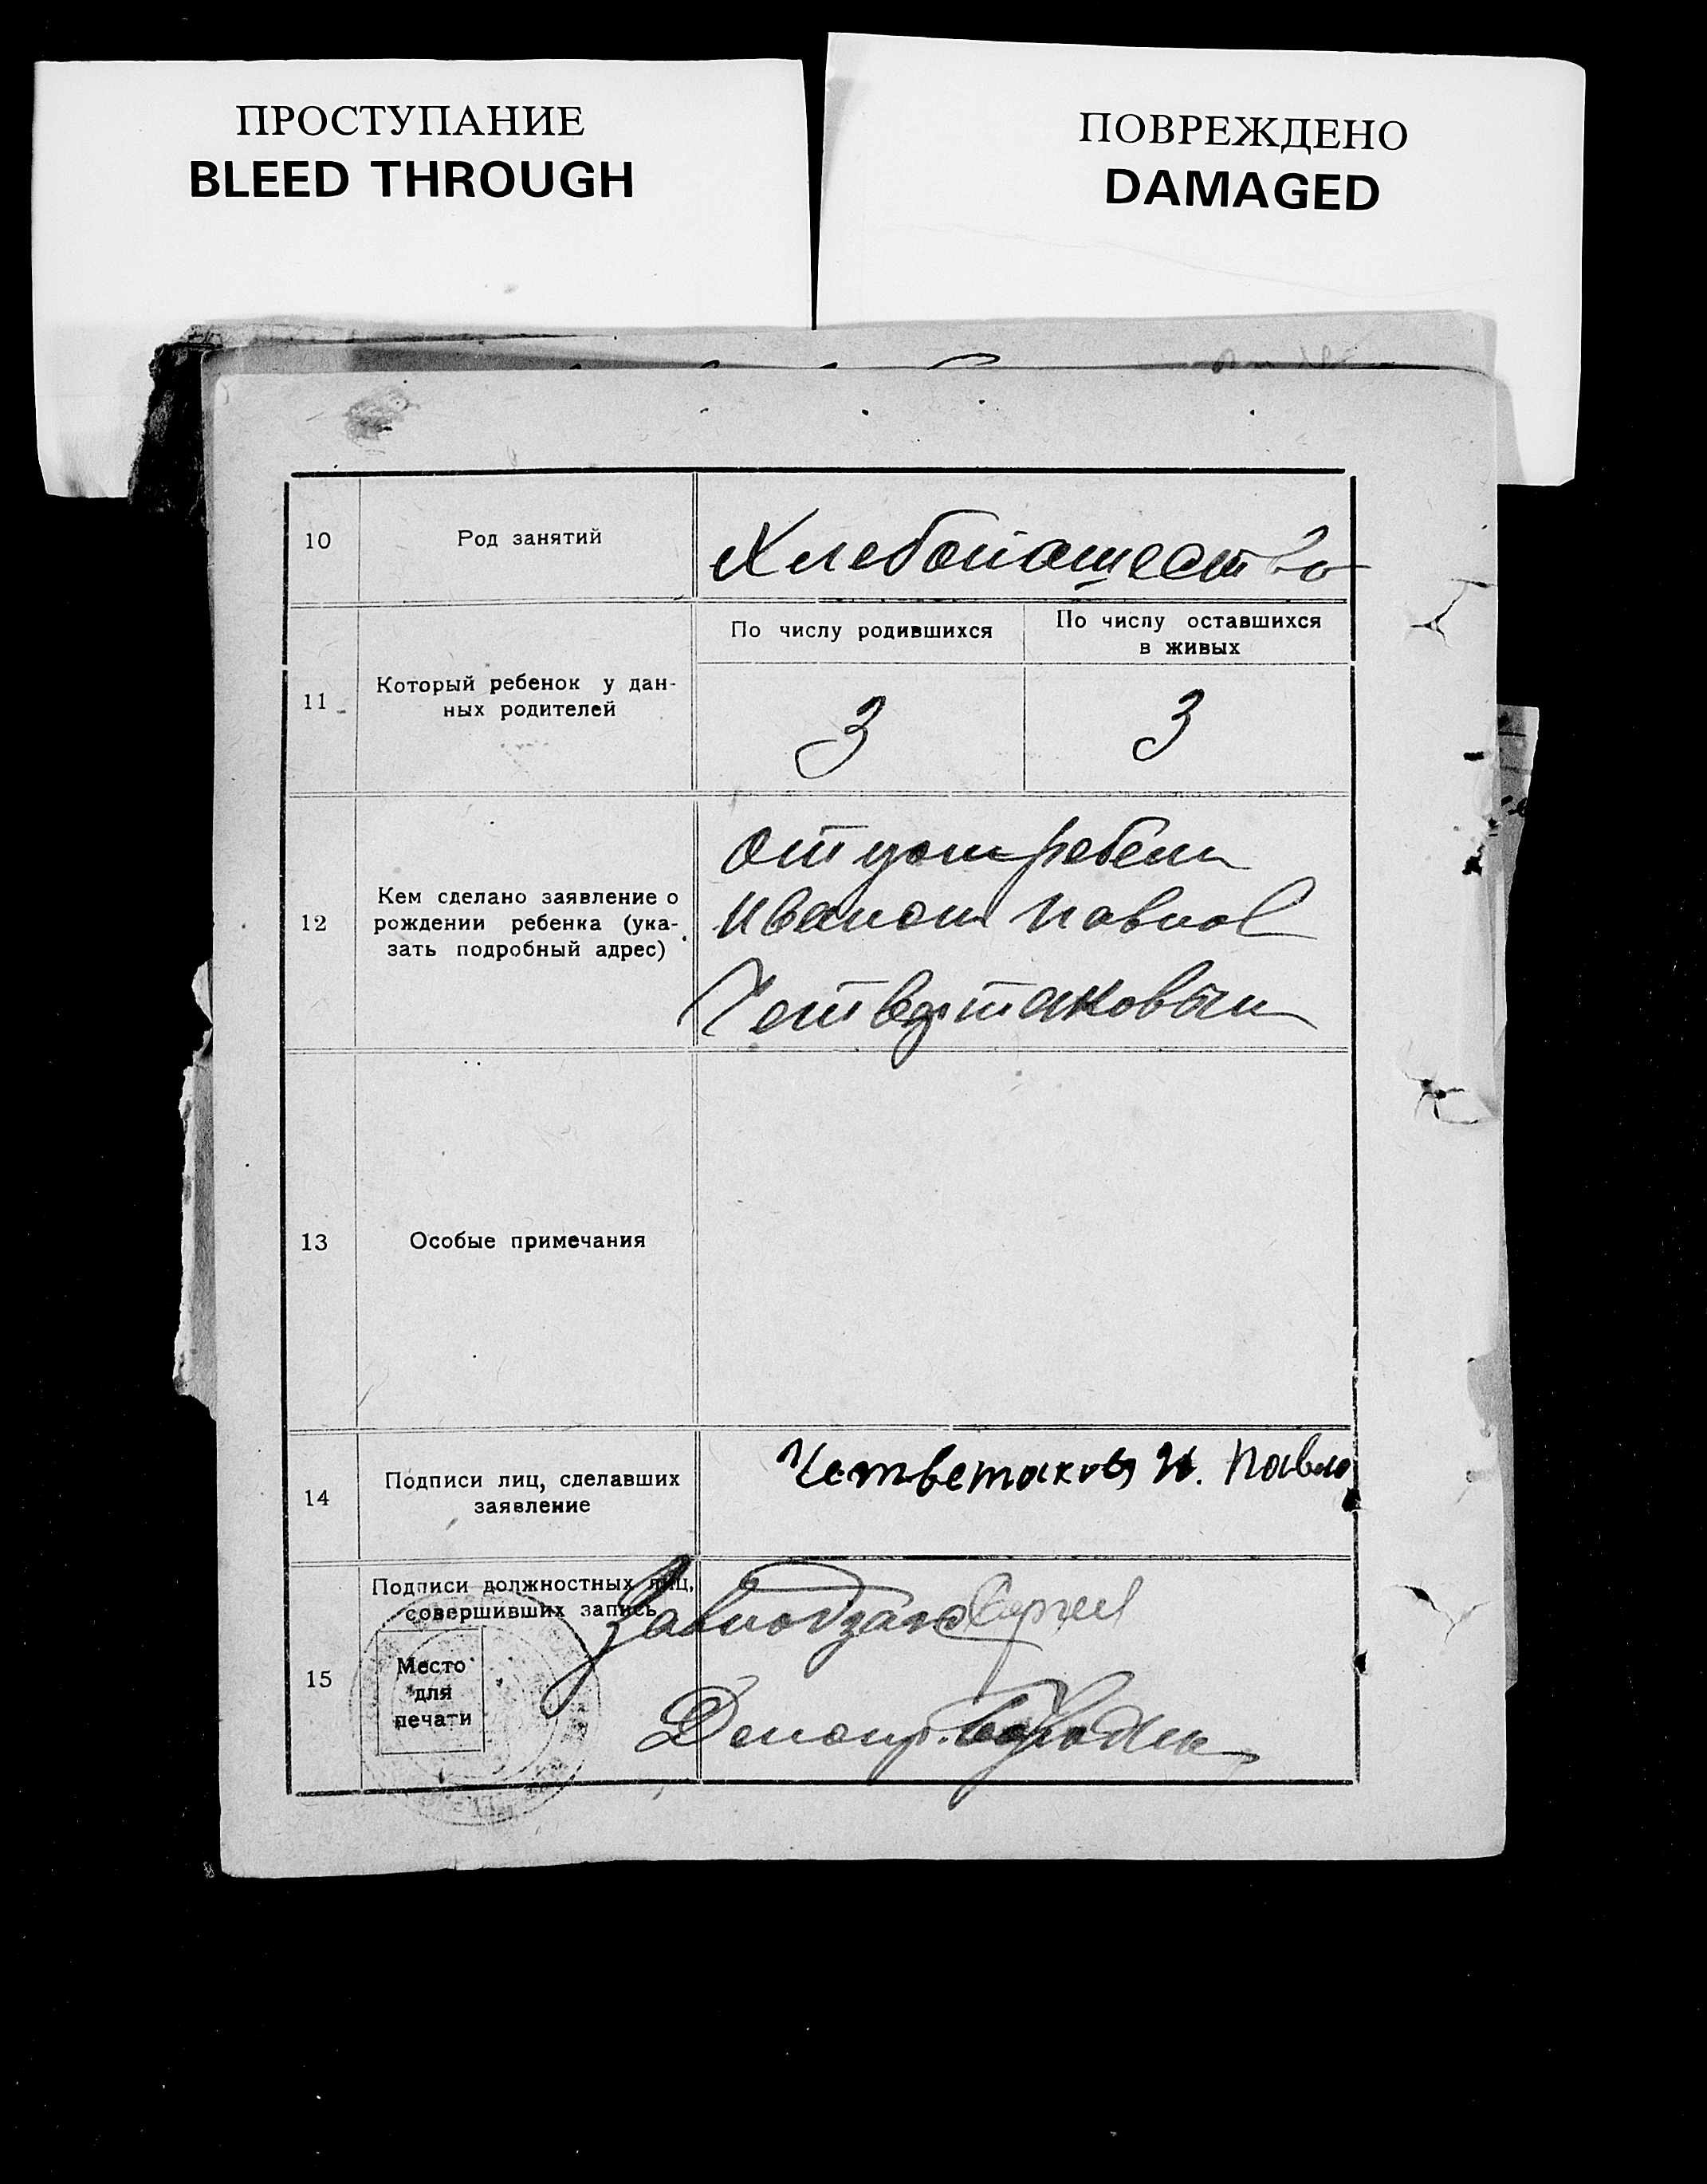 ПРОСТУПАНИЕ
BLEED THROUGH
ПОВРЕЖДЕНО
DAMAGED
10
Род занятий
Хлебопашество
11
Который ребенок у дан-
ных родителей
По числу родившихся
По числу оставшихся
в живых
3
3
12
Кем сделано заявление о
рождении ребенка (ука-
зать подробный адрес)
Отцом ребен
Иваном Павлов
Четвертаковым
13
Особые примечания
14
Подписи лиц, сделавших
заявление
Четветаков И. Павло
15
Подписи должностных лиц,
совершивших запись
Место
для
печати